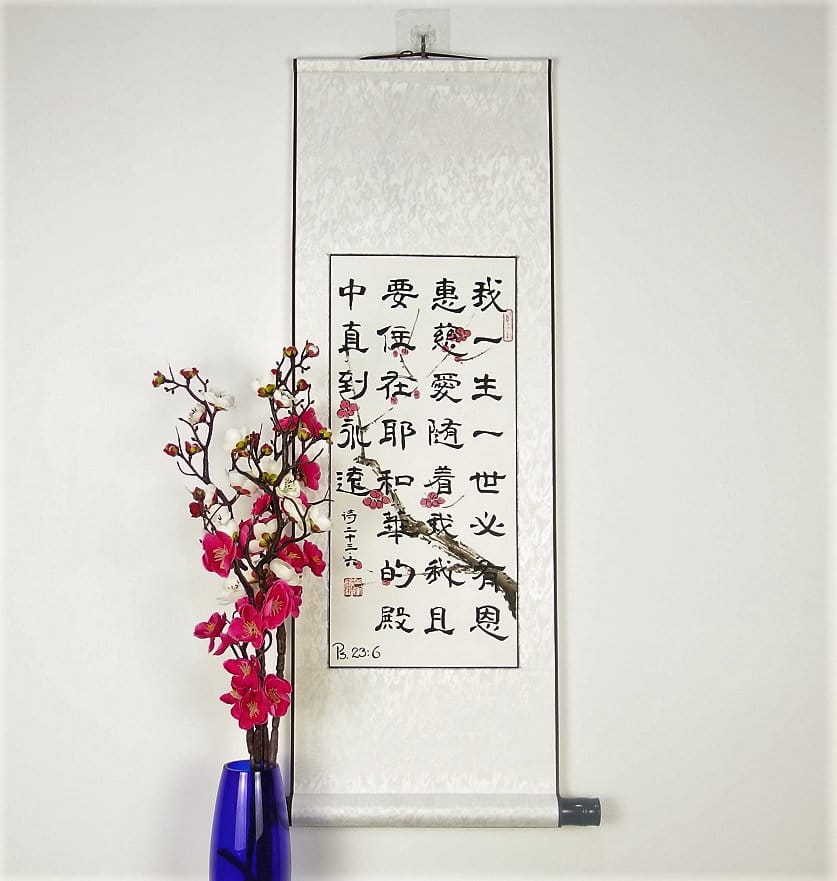 我一生一世必有恩
惠慈愛随着我我且
要住在耶和華的殿
中真到永遠
诗二十三·六
Ps. 23:6